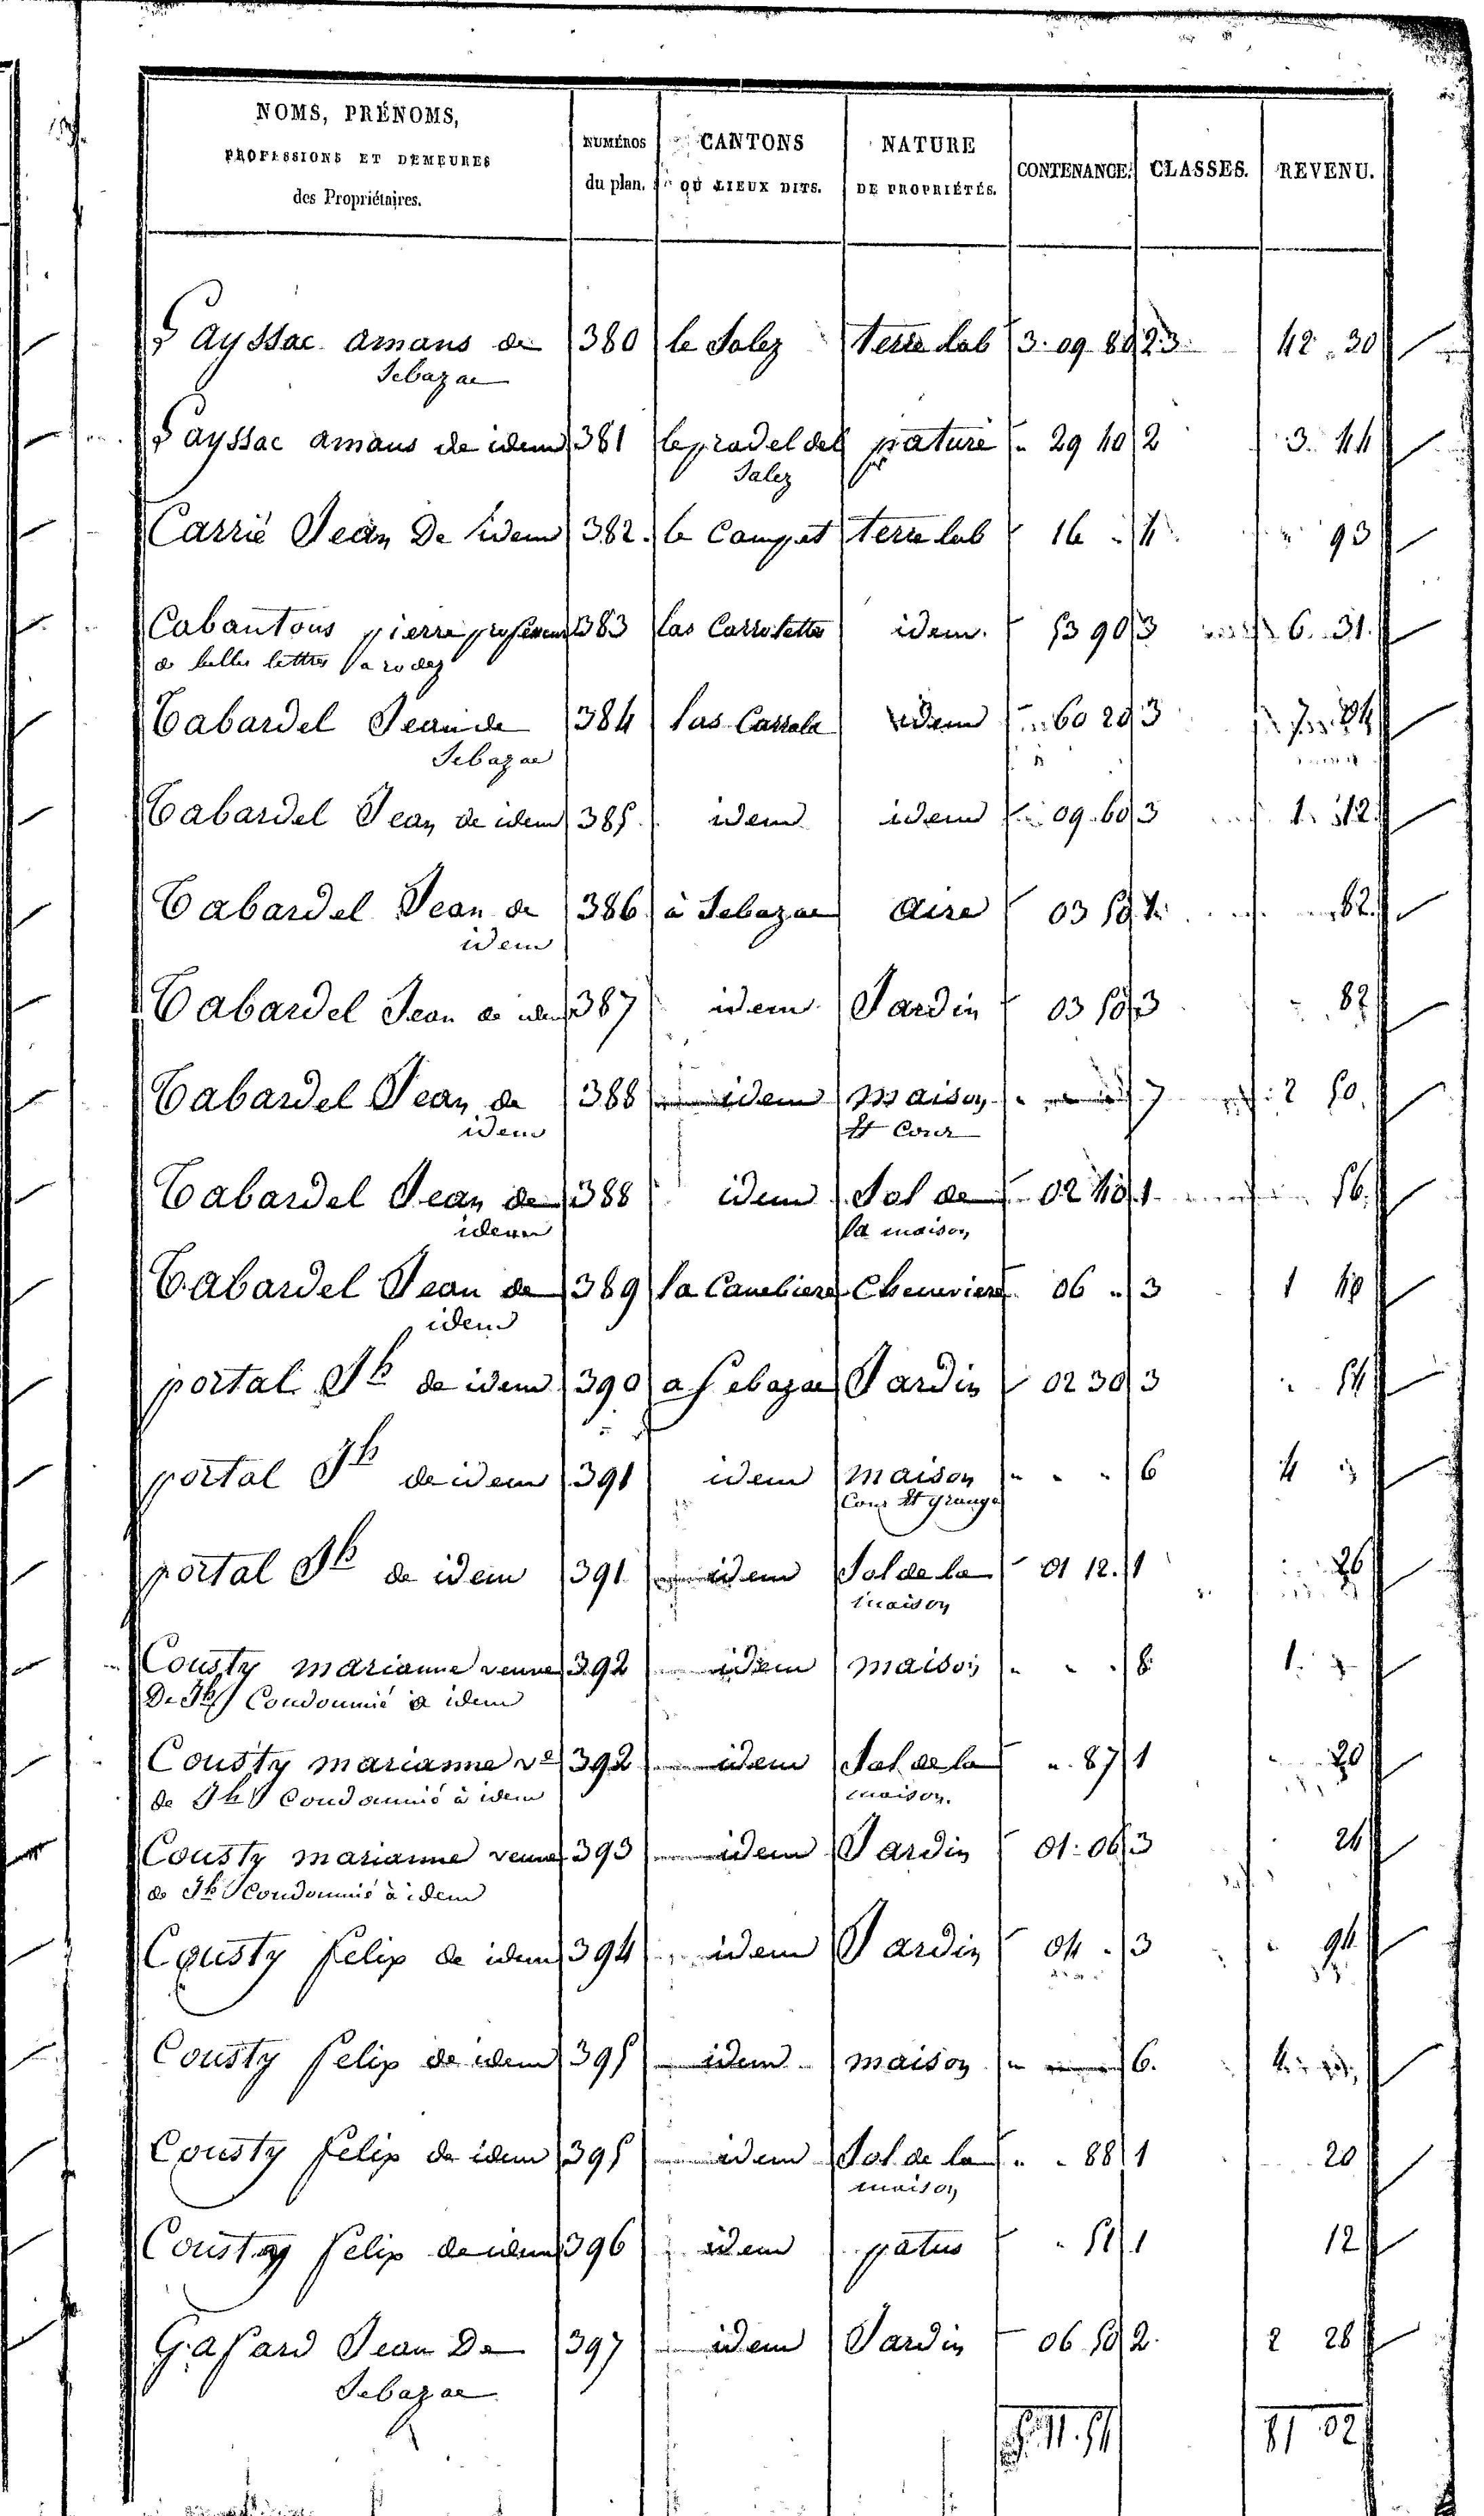 NOMS, PRÉNOMS, PROFESSIONS ET DEMEURES des Propriétaires. NUMÉROS du plan. CANTONS OU LIEUX DITS. NATURE DE PROPRIÉTÉS. CONTENANCE. CLASSES. REVENU.
Layssac amans de 380 le Salez terre lab 3. 09. 80 2.3. 42. 30
Sebazac
Layssac amans de idem 381 le pradel del pature 29 40 2 3. 44
Salez
Carrié Jean De idem 382. le Campet terre lab 16 4 93
Cabantous pierre professeur 383 las Carroletter idem. 53 90 3 6. 31.
de belles lettres a rodez
Cabardel Jean de 384 las Carrols idem 60 20 3 7. 04
Sebazac
Cabardel Jean de idem 385. idem idem 09. 60 3 1. 12.
Cabardel Jean de 386 à Sebazac aire 03 50 1. 82.
idem
Cabardel Jean de idem 387 idem Jardin 03 50 3 82
Cabardel Jean de 388 idem maison 7 2 50.
idem et Cour
Cabardel Jean de 388 idem Sol de 02 40 1 56.
idem la maison
Cabardel Jean de 389 la Canebiere Cheneviere 06 " 3 1 40
idem
portal Jh de idem 390 a Sebazac Jardin 02 30 3 " 54
portal Jh de idem 391 idem maison " " " 6 4 "
Cour et grange
portal Jh de idem 391 idem Sol de la 01 12. 1 26
maison
Cousty marianne veuve 392 idem maison " " " 8 1. "
De Jh Condoumié a idem
Cousty marianne ve 392 idem Sol de la " 87 1 20
de Jh Condoumié à idem maison.
Cousty marianne veuve 393 idem Jardin 01. 06 3 24
de Jh Condoumié à idem
Cousty felix de idem 394 idem Jardin 04 " 3 94
Cousty felix de idem 395 idem maison " 6. 4.
Cousty felix de idem 395 idem Sol de la " " 88 1 20
maison
Cousty felix de idem 396 idem patus " 51 1 12
Gafard Jean De 397 idem Jardin 06 50 2. 2 28
Sebazac
5. 11. 54 81 02